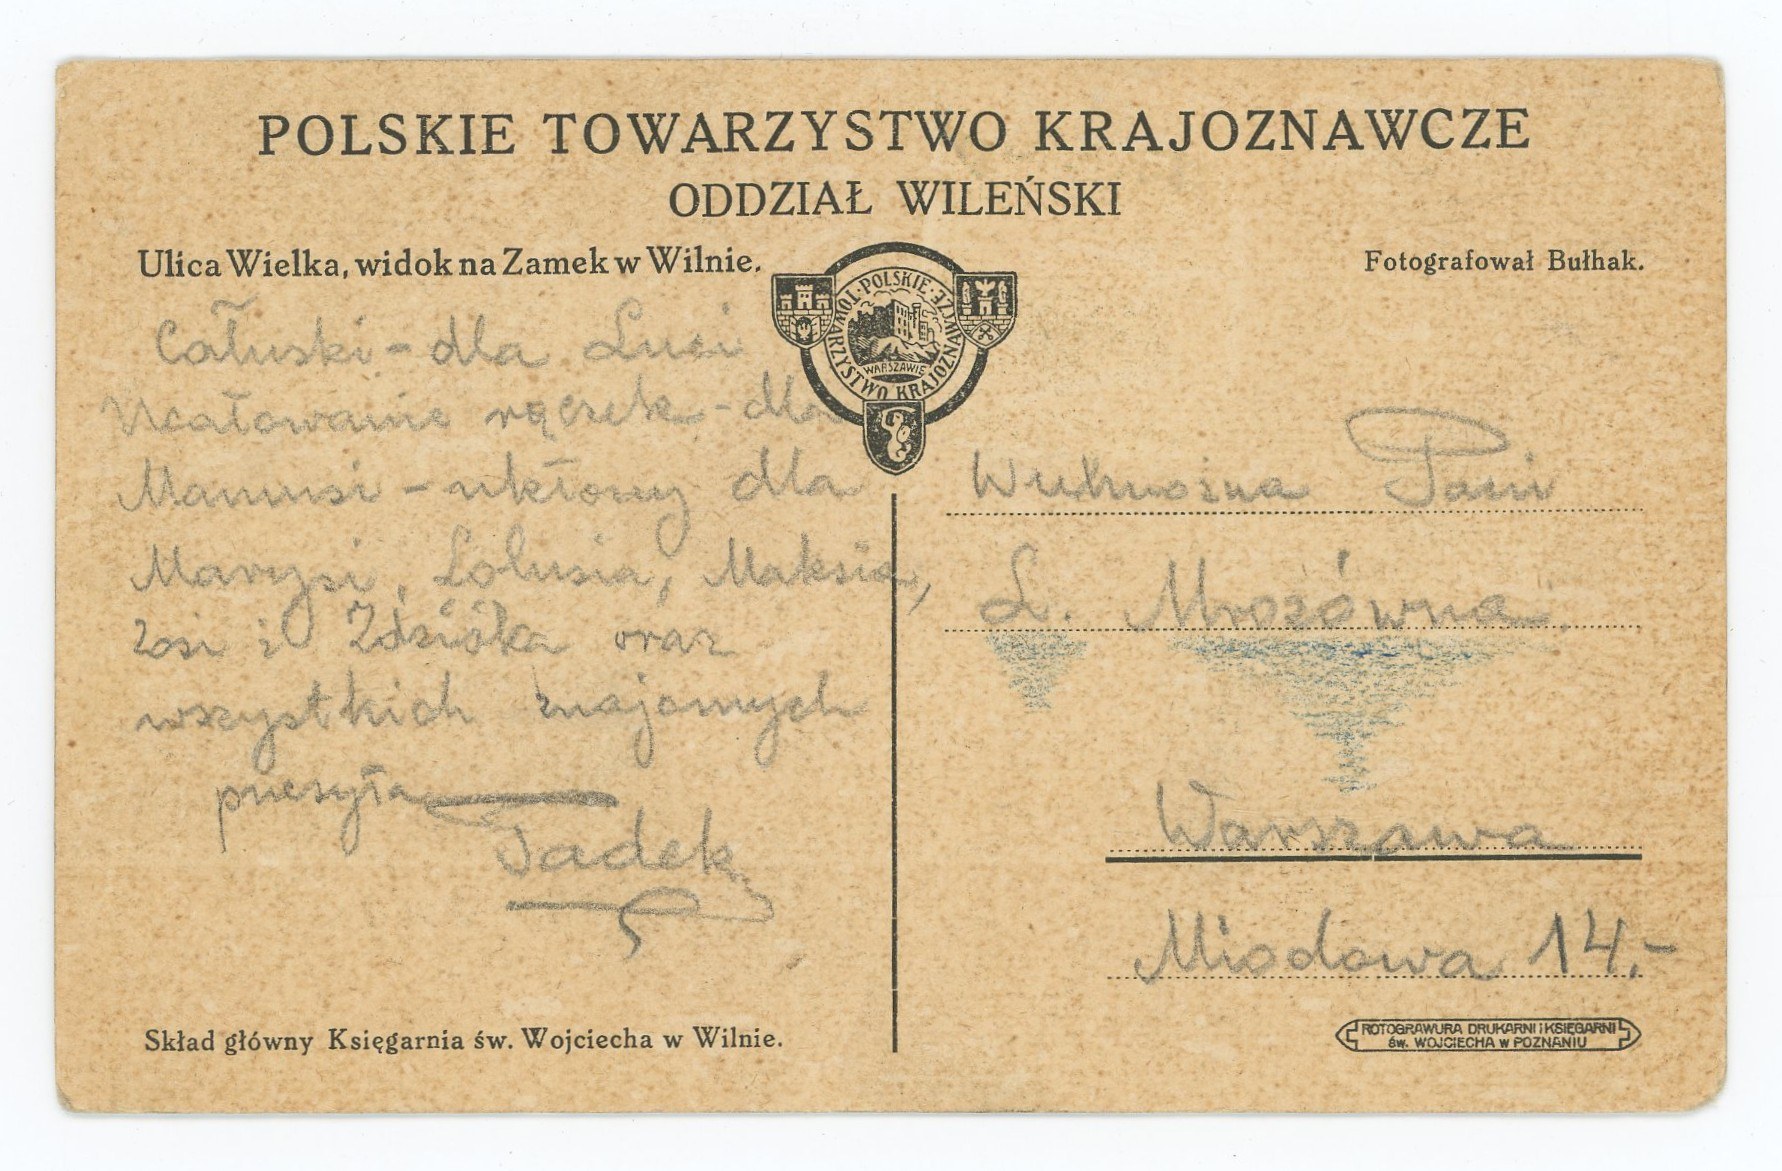 POLSKIE TOWARZYSTWO KRAJOZNAWCZE
ODDZIAŁ WILEŃSKI
Ulica Wielka, widok na Zamek w Wilnie.
Fotografował Bułhak.
POLSKIE TOWARZYSTWO KRAJOZNAWCZE
WARSZAWIE
Całuski - dla Luci
Ucałowanie rączek - dla
Mamusi - ukłony dla
Marysi, Lolusia, Maksia,
Zosi i Zdziśka oraz
wszystkich znajomych
przesyła
Tadek
Skład główny Księgarnia św. Wojciecha w Wilnie.
Wielmożna Pani
L. Mrozówna
Warszawa
Miodowa 14.-
ROTOGRAWURA DRUKARNI i KSIĘGARNI
św. WOJCIECHA w POZNANIU